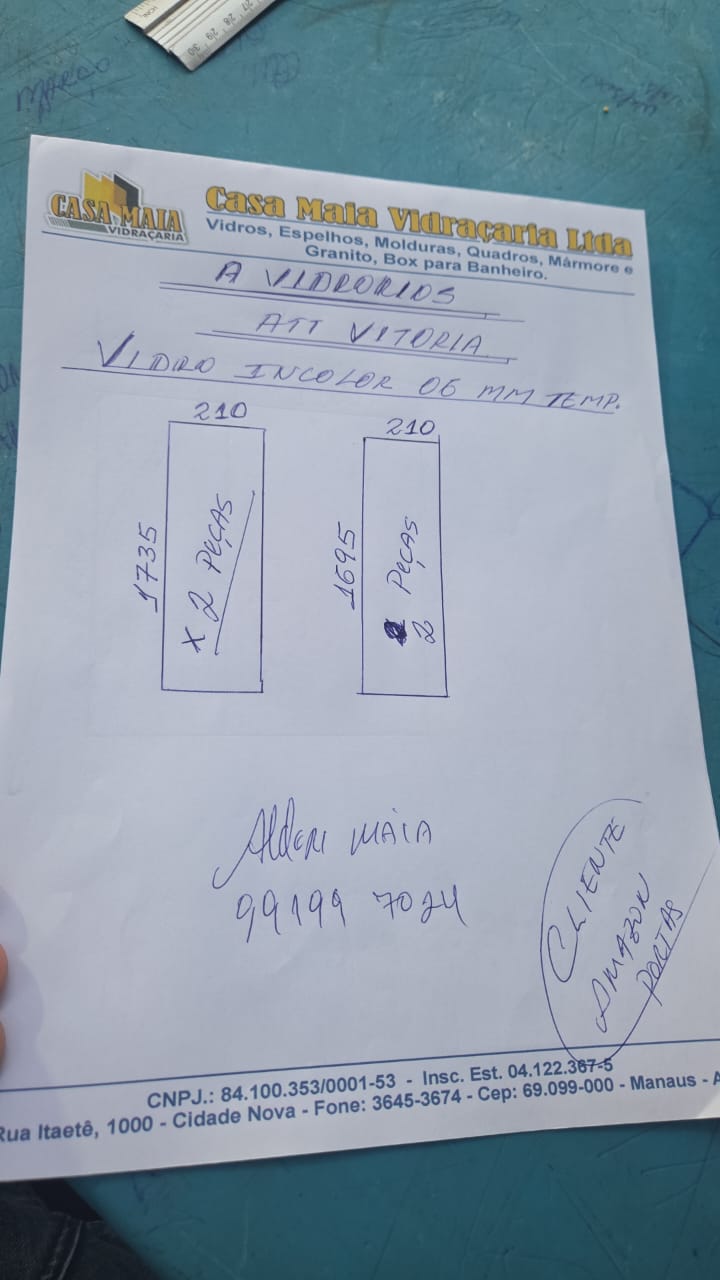 CASA MAIA
VIDRAÇARIA
Casa Maia Vidraçaria Ltda
Vidros, Espelhos, Molduras, Quadros, Mármore e
Granito, Box para Banheiro.
A VIDRORIOS
ATT VITORIA
VIDRO INCOLOR 06 MM TEMP.
210
1735
X 2 PEÇAS
210
1695
2 PEÇAS
Alderi MAIA
99199 7024
CLIENTE
AMAZON
PORTAS
CNPJ.: 84.100.353/0001-53 - Insc. Est. 04.122.367-5
Rua Itaetê, 1000 - Cidade Nova - Fone: 3645-3674 - Cep: 69.099-000 - Manaus - A
30 29 28 27